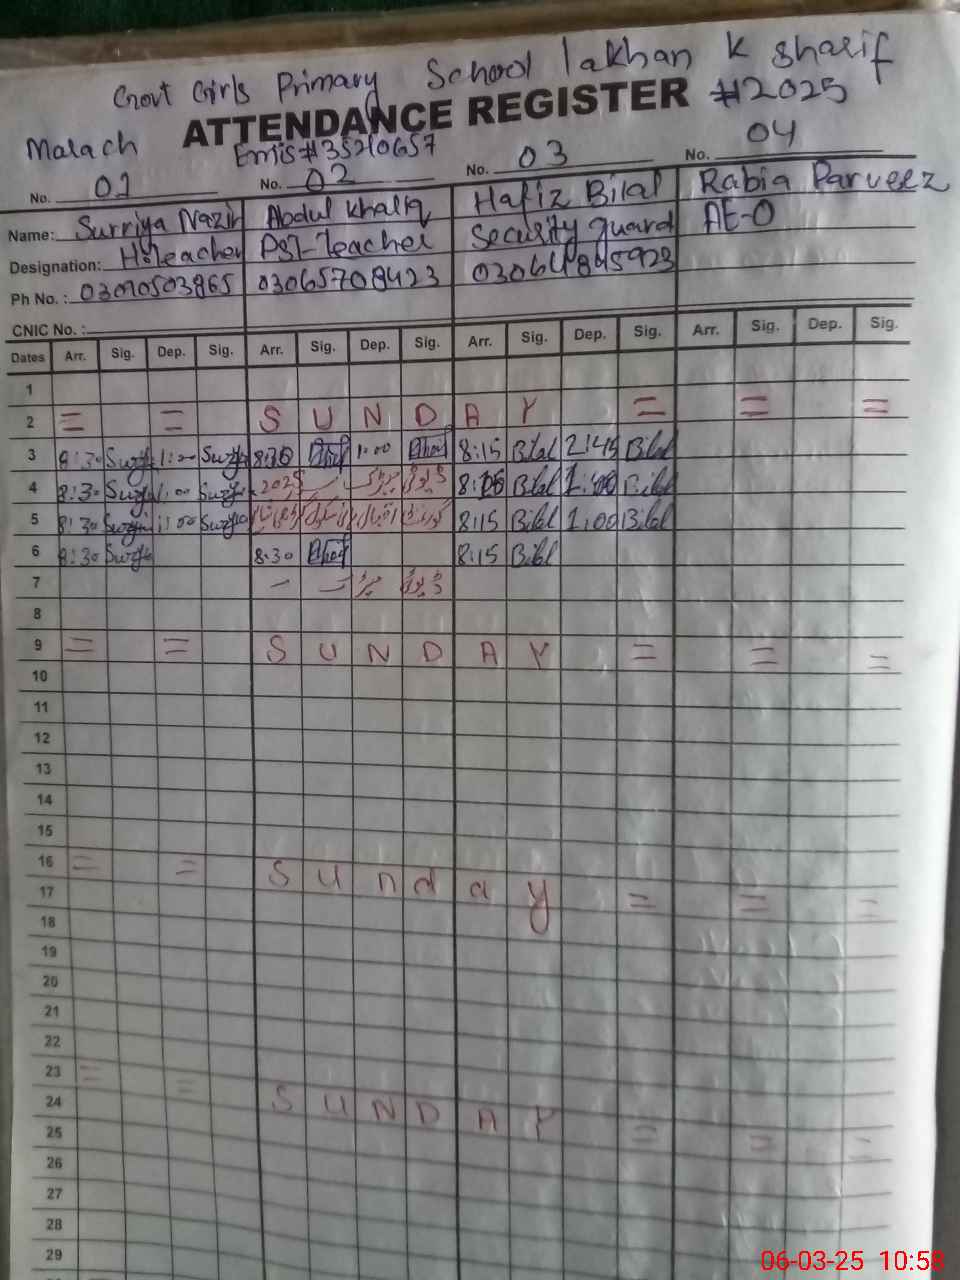 Govt Girls Primary School lakhan k sharif
ATTENDANCE REGISTER #2025
Malach Emis#35210657
No. 01 No. 02 No. 03 No. 04
Name: Surriya Nazir Abdul Khaliq Hafiz Bilal Rabia Parveez
Designation: H.Teacher PST-Teacher Security guard AE-O
Ph No. : 03090503865 03065708423 03064845923
CNIC No. :
Dates Arr. Sig. Dep. Sig. Arr. Sig. Dep. Sig. Arr. Sig. Dep. Sig. Arr. Sig. Dep. Sig.
1
2 = = S U N D A Y = = =
3 8:30 1:00 8:30 1:00 8:15 Bilal 2:45 Bilal
4 8:30 1:00 2025 ڈیوٹی میٹرک 8:15 Bilal 1:00 Bilal
5 8:30 1:00 8:15 Bilal 1:00 Bilal
6 8:30 8:30 8:15 Bilal
7 ڈیوٹی میٹرک
8
9 = = S U N D A Y = = =
10
11
12
13
14
15
16 = = S u n d a y = = =
17
18
19
20
21
22
23 = = S U N D A Y = = =
24
25
26
27
28
29
06-03-25 10:58